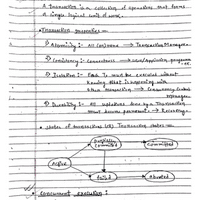 A Transaction is a collection of operations that forms
a single logical unit of work.
Transaction properties -
Atomicity :- All (or) none → Transaction Manager
Consistency :- Correctness →
Isolation :- must be executed without
knowing that is happening with
other transaction → Concurrency Control
Manager
Durability :- All updates done by a Transaction
must become permanent → Recovery
States of transaction (or) Transaction states -
Partially
committed
Committed
Active
failed
aborted
Concurrent execution :